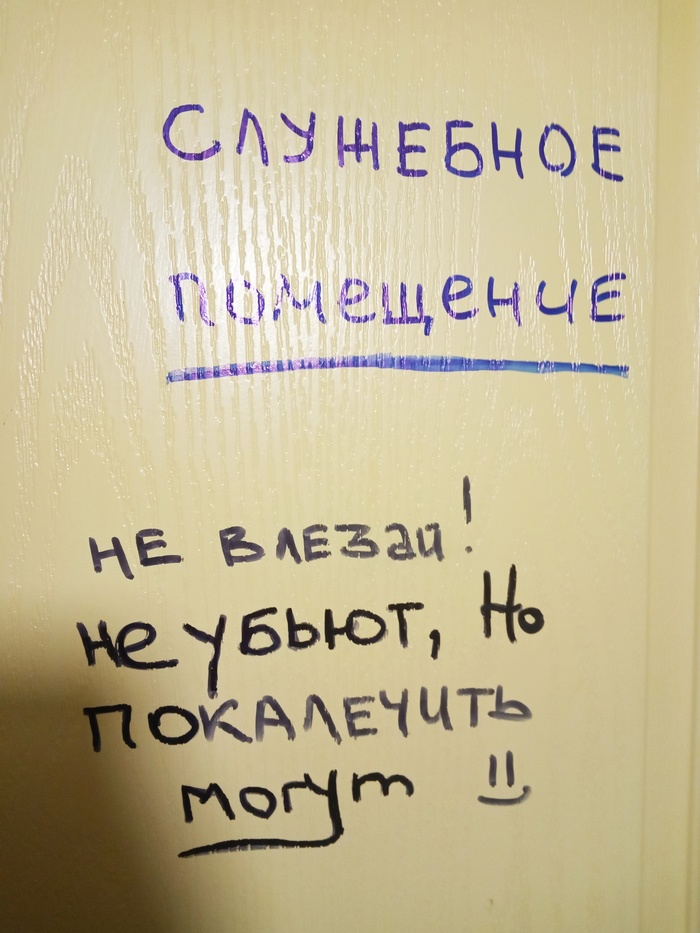 СЛУЖЕБНОЕ
помещение
НЕ ВЛЕЗай!
не убьют, Но
ПОКАЛЕЧИТЬ
могут